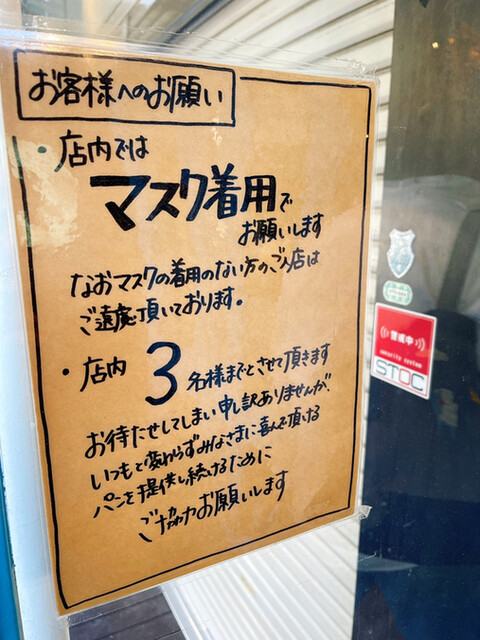 お客様へのお願い
・店内では
マスク着用で
お願いします
なおマスクの着用のない方のご入店は
ご遠慮頂いております。
・店内 3名様までとさせて頂きます
お待たせしてしまい申し訳ありませんが、
いつもと変わらずみなさまに喜んで頂ける
パンを提供し続けるために
ご協力お願いします
警戒中
security system
STOC